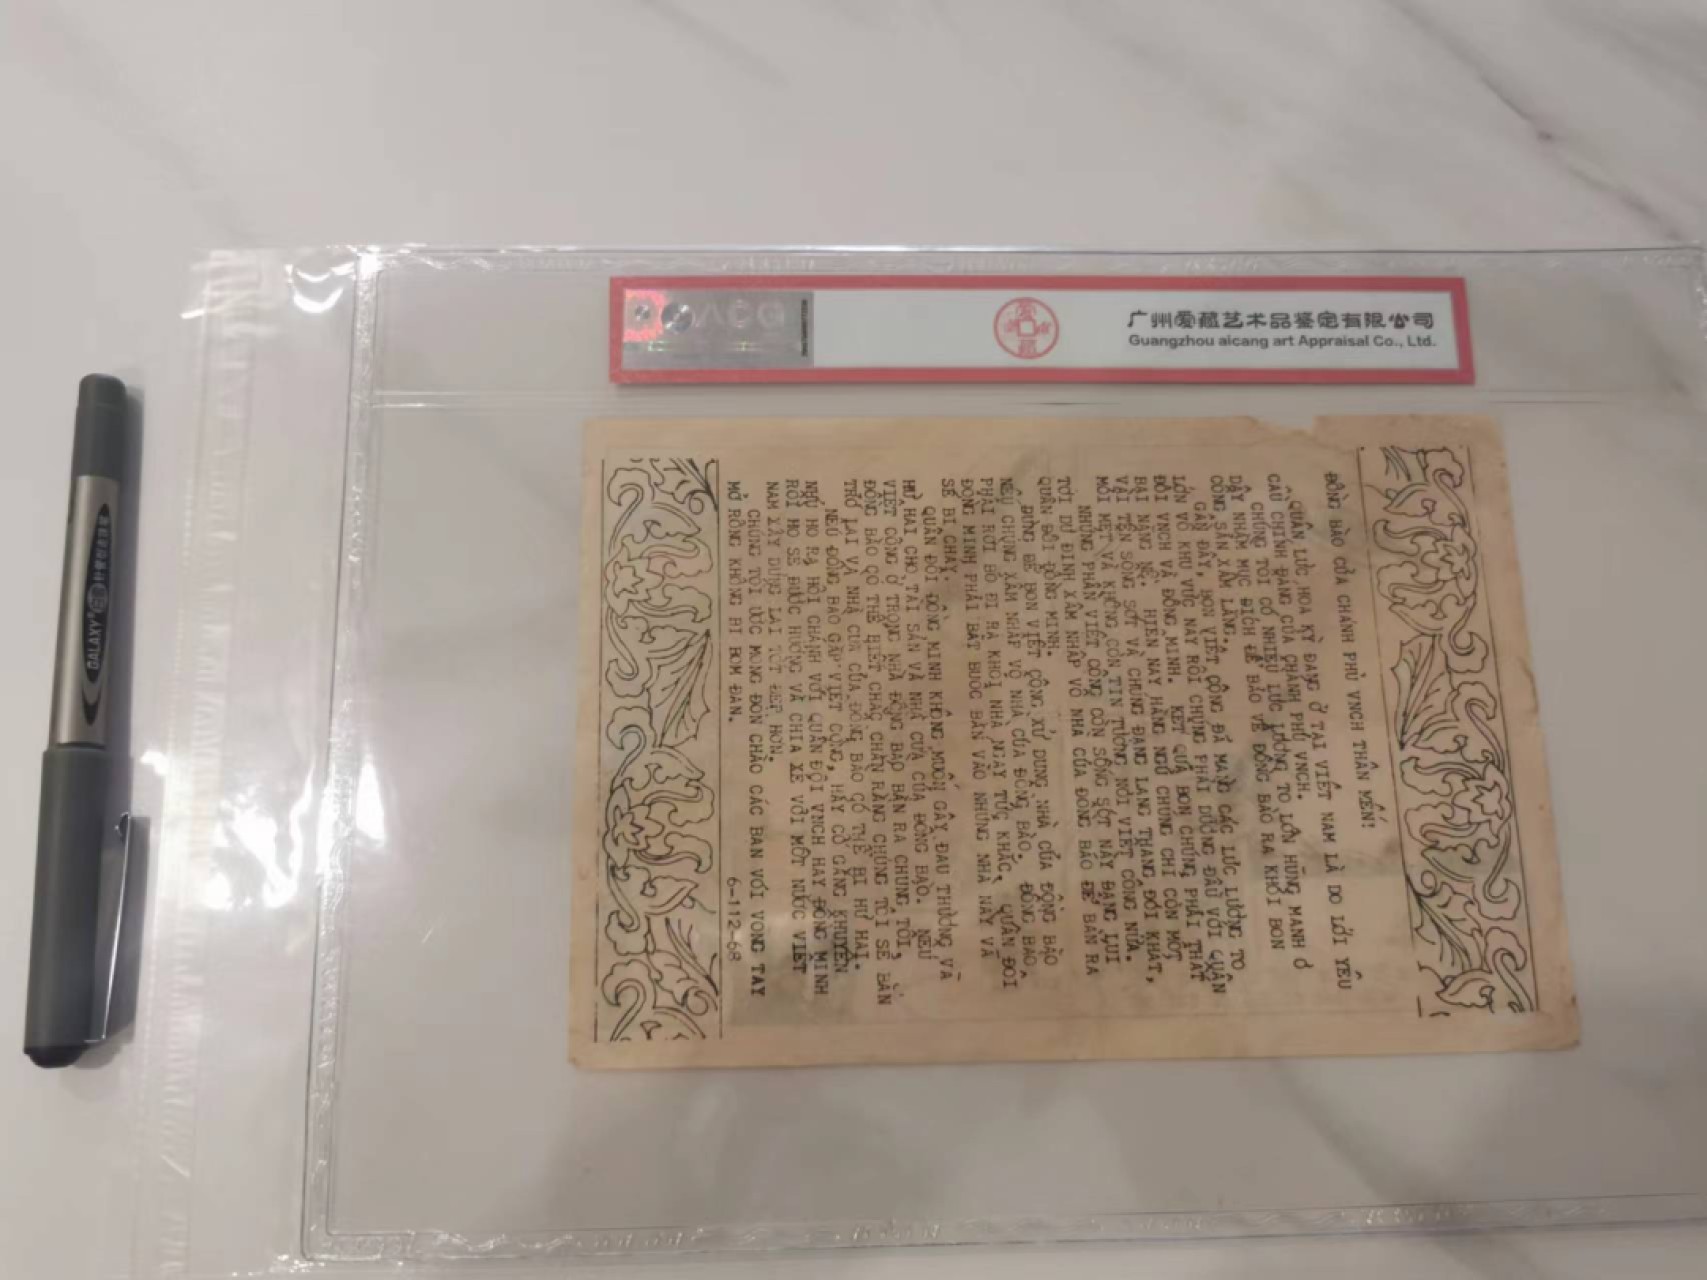 广州爱藏艺术品鉴定有限公司
Guangzhou aicang art Appraisal Co., Ltd.
GALAXY
ĐỒNG BÀO CỦA CHÁNH PHỦ VNCH THÂN MẾN!
QUÂN LỰC HOA KỲ ĐANG Ở TẠI VIỆT NAM LÀ DO LỜI YÊU
CẦU CHÍNH ĐÁNG CỦA CHÁNH PHỦ VNCH.
CHÚNG TÔI CÓ NHIỀU LỰC LƯỢNG TO LỚN HÙNG MẠNH Ở
ĐÂY NHẰM MỤC ĐÍCH ĐỂ BẢO VỆ ĐỒNG BÀO RA KHỎI BỌN
CỘNG SẢN XÂM LĂNG.
GẦN ĐÂY, BỌN VIỆT CỘNG ĐÃ MANG CÁC LỰC LƯỢNG TO
LỚN VÔ KHU VỰC NẦY RỒI CHÚNG PHẢI ĐƯƠNG ĐẦU VỚI QUÂN
ĐỘI VNCH VÀ ĐỒNG MINH. KẾT QUẢ BỌN CHÚNG PHẢI THẤT
BẠI NẶNG NỀ. HIỆN NAY HÀNG NGŨ CHÚNG CHỈ CÒN MỘT
VÀI TÊN SỐNG SÓT VÀ CHÚNG ĐANG LANG THANG ĐÓI KHÁT,
MỎI MỆT VÀ KHÔNG CÒN TIN TƯỞNG NƠI VIỆT CỘNG NỮA.
NHỮNG PHẦN VIỆT CỘNG CÒN SỐNG SÓT NẦY ĐANG LUI
TỚI DỰ ĐỊNH XÂM NHẬP VÔ NHÀ CỦA ĐỒNG BÀO ĐỂ BẮN RA
QUÂN ĐỘI ĐỒNG MINH.
ĐỪNG ĐỂ BỌN VIỆT CỘNG XỬ DỤNG NHÀ CỦA ĐỒNG BÀO
NẾU CHÚNG XÂM NHẬP VÔ NHÀ CỦA ĐỒNG BÀO, ĐỒNG BÀO
PHẢI RỜI BỎ ĐI RA KHỎI NHÀ NGAY TỨC KHẮC, QUÂN ĐỘI
ĐỒNG MINH PHẢI BẮT BUỘC BẮN VÀO NHỮNG NHÀ NẦY VÀ
SẼ BỊ CHÁY.
QUÂN ĐỘI ĐỒNG MINH KHÔNG MUỐN GÂY ĐAU THƯƠNG VÀ
HƯ HẠI CHO TÀI SẢN VÀ NHÀ CỬA CỦA ĐỒNG BÀO. NẾU
VIỆT CỘNG Ở TRONG NHÀ ĐỒNG BÀO BẮN RA CHÚNG TÔI,
ĐỒNG BÀO CÓ THỂ BIẾT CHẮC CHẮN RẰNG CHÚNG TÔI SẼ BẮN
TRỞ LẠI VÀ NHÀ CỬA CỦA ĐỒNG BÀO CÓ THỂ BỊ HƯ HẠI.
NẾU ĐỒNG BÀO GẶP VIỆT CỘNG, HÃY CỐ GẮNG KHUYÊN
NHỦ HỌ RA HỒI CHÁNH VỚI QUÂN ĐỘI VNCH HAY ĐỒNG MINH
RỒI HỌ SẼ ĐƯỢC HƯỞNG VÀ CHIA XẺ VỚI MỘT NƯỚC VIỆT
NAM XÂY DỰNG LẠI TỐT ĐẸP HƠN.
CHÚNG TÔI ƯỚC MONG ĐÓN CHÀO CÁC BẠN VỚI VÒNG TAY
MỞ RỘNG KHÔNG BỊ BOM ĐẠN.
6-112-68